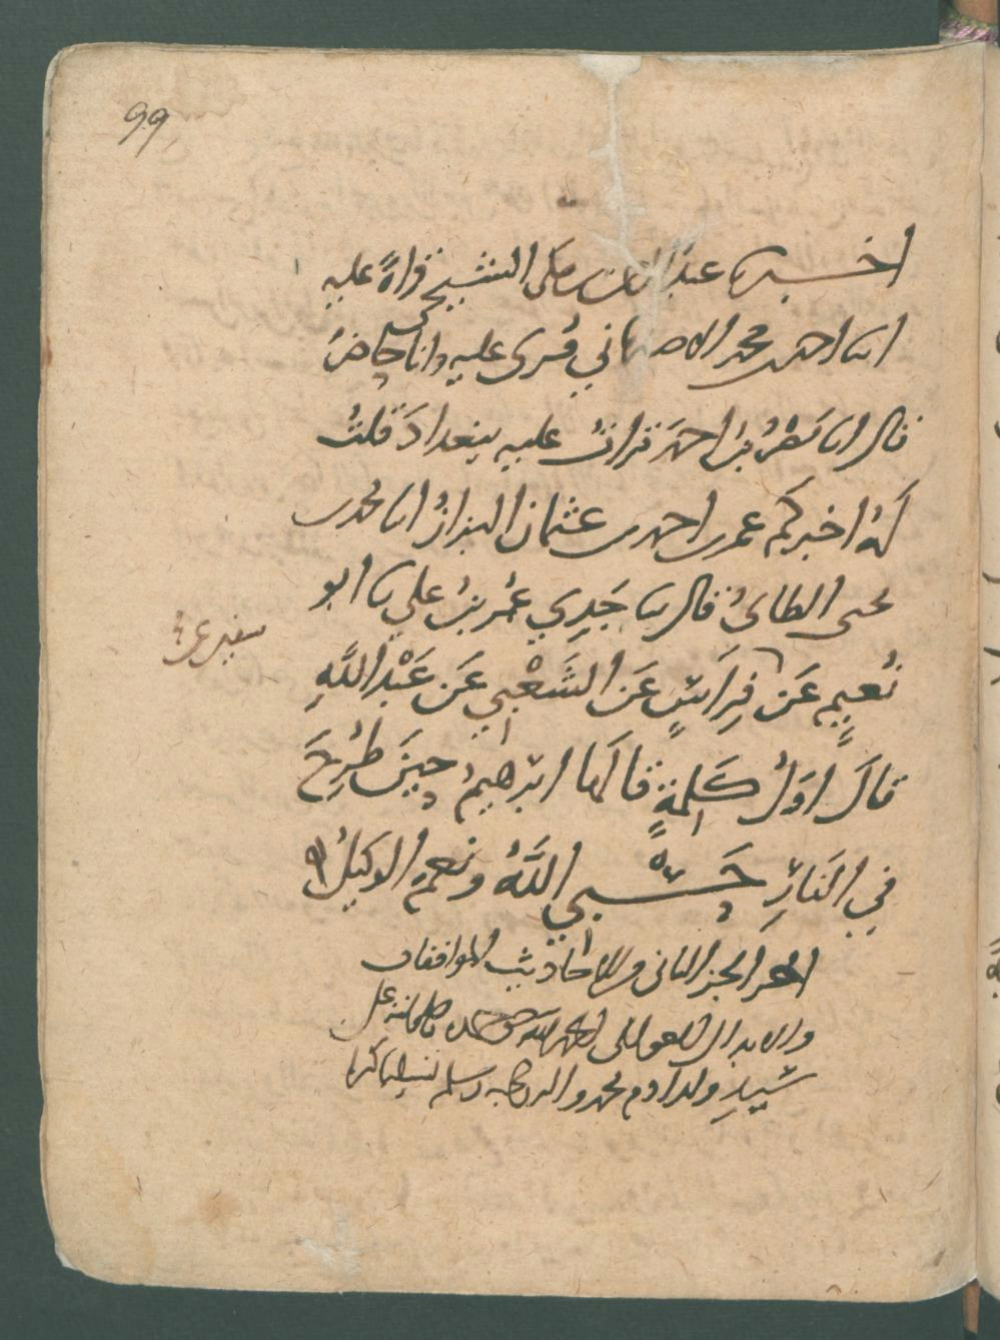 99
اخبرنا عبد الله بن علي الشيخي قراةً عليه
انا احمد بن محمد الاصبهاني قرى عليه وانا حاضر
قال انا نصر بن احمد قرات عليه ببغداد قلت
له اخبركم عمر بن احمد بن عثمان البزاز انا محمد بن
يحيى الطائي قال نا جَدِي عُمر بن علي نا ابو
نُعيم عَن فِرَاسٍ عَن الشَعْبي عَن عَبْد اللَّهِ
سفين عن
قالَ اوَلُ كَلمةٍ قالَها ابرهيمُ حينَ طُرِحَ
فِي النَارِ حَسْبي اللَّهُ ونعم الوكيلُ
اخر الجزء الثاني من الاحاديث الموافقات
والابدال العوالي الحمد لله وصلواته على
سيد ولد ادم محمد واله وصحبه وسلم تسليما كثيرا